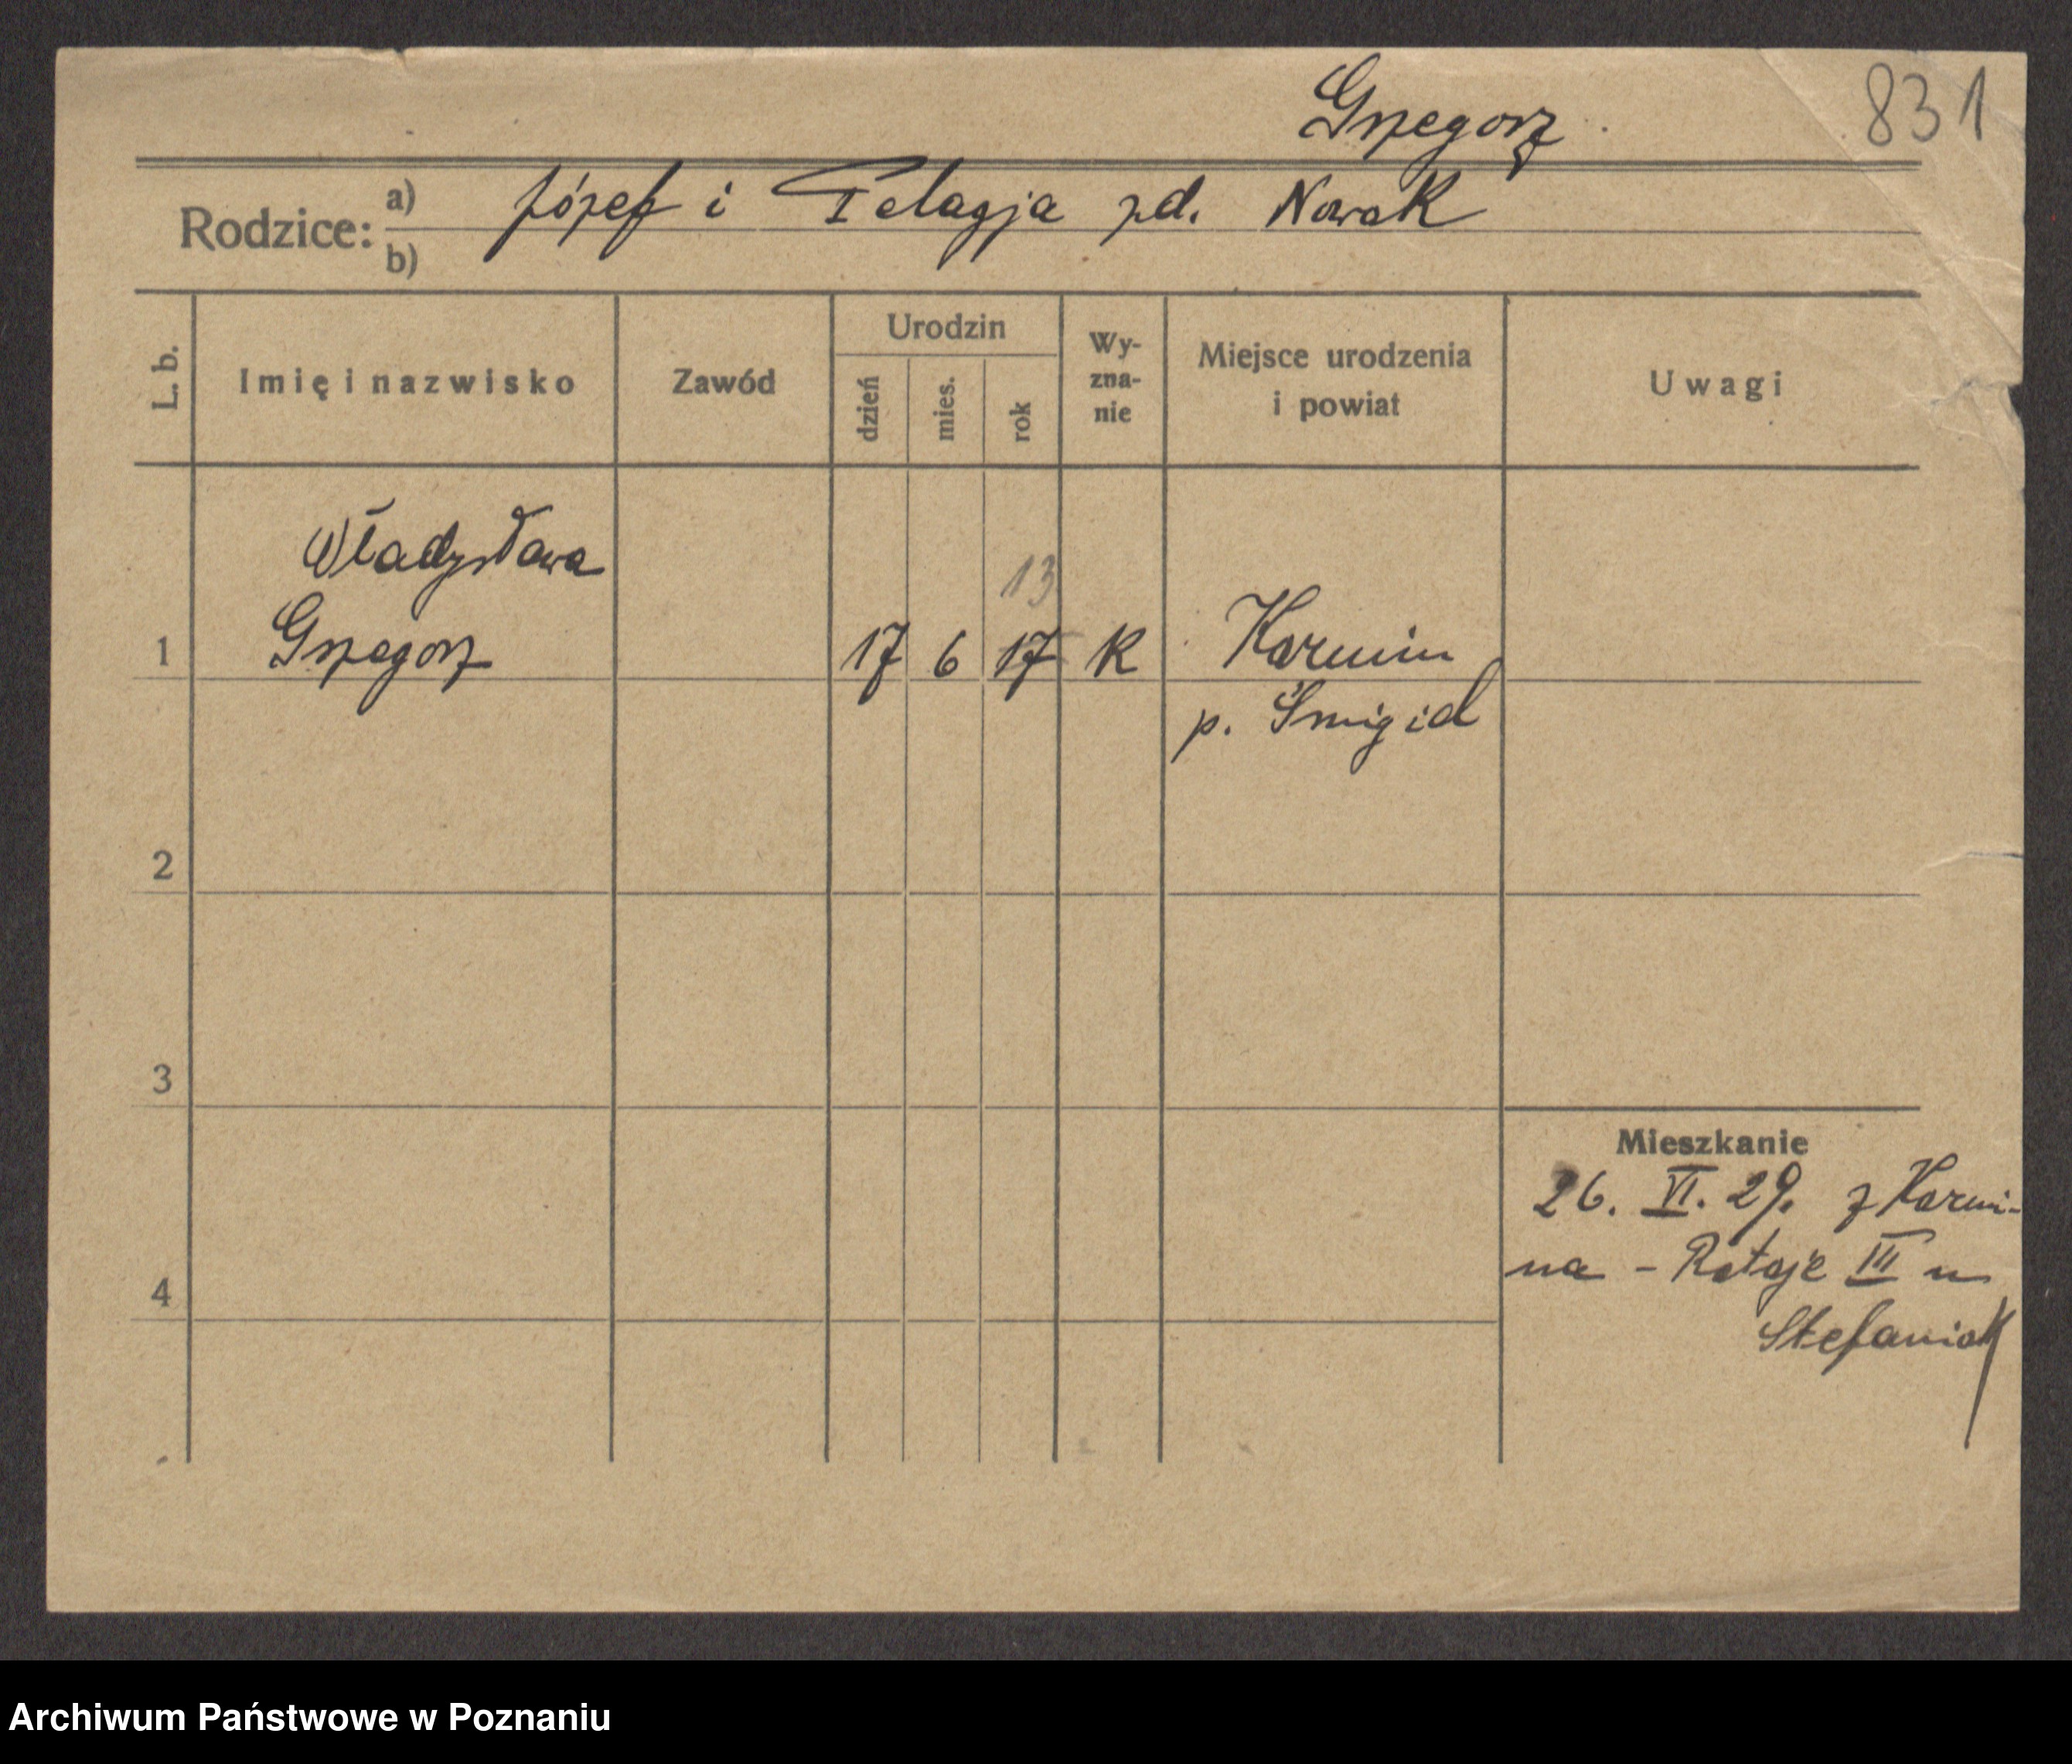 Grzegorz 831
Rodzice: a) Józef i Pelagja zd. Nowak
b)
L. b. Imię i nazwisko Zawód Urodzin dzień mies. rok Wy-zna-nie Miejsce urodzenia i powiat Uwagi
Władysława
13
1 Grzegorz 17 6 17 K Karmin
p. Śmigiel
2
3
Mieszkanie
26. VI. 29. z Karmi-
na - Rataje III u
4
Stefaniak
Archiwum Państwowe w Poznaniu